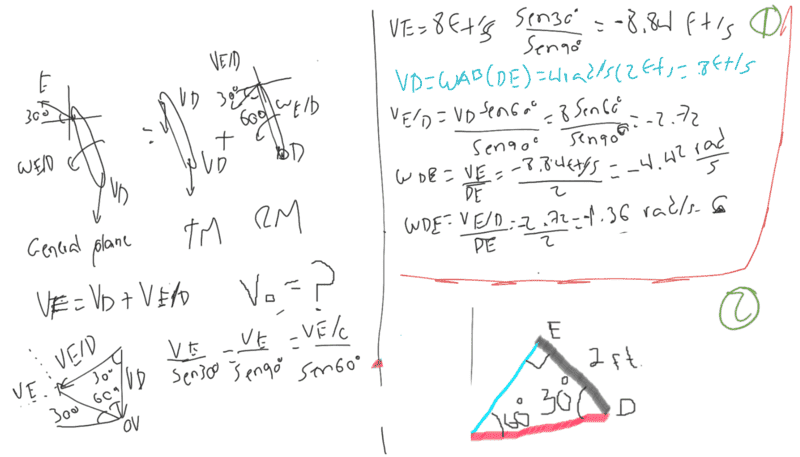 E
30°
WE/D
VD
General plane
=
VD
VD
TM
+
VE/D
30°
60°
WE/D
D
RM
VE = VD + VE/D
V▫ = ?
VE/D
VE
30°
60°
VD
30°
OV
VE/Sen30° = VE/Sen90° = VE/C/Sen60°
VE = 8ft/s Sen30°/Sen90° = -8.84 ft/s
1
VD = WAD(DE) = 4rad/s(2ft) = 8ft/s
VE/D = VD Sen60°/Sen90° = 8 Sen60°/Sen90° = -2.72
WDE = VE/DE = -8.84ft/s/2 = -4.42 rad/s
WDE = VE/D/DE = -2.72/2 = -1.36 rad/s
2
E
2 ft.
60°
30°
D